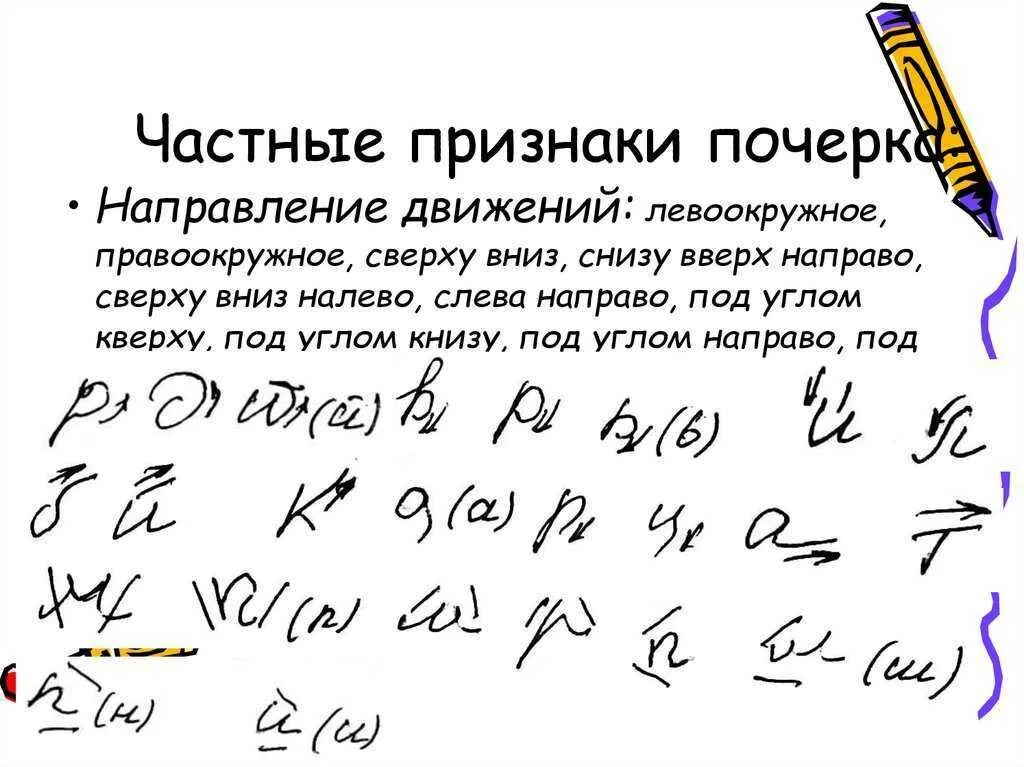 Частные признаки почерка:
• Направление движений: левоокружное,
правоокружное, сверху вниз, снизу вверх направо,
сверху вниз налево, слева направо, под углом
кверху, под углом книзу, под углом направо, под
р д ш (й) в р в (в) и я
б и к а (а) р ч а т
ж п (п) ш р п ш (ш)
н (н) и (и)